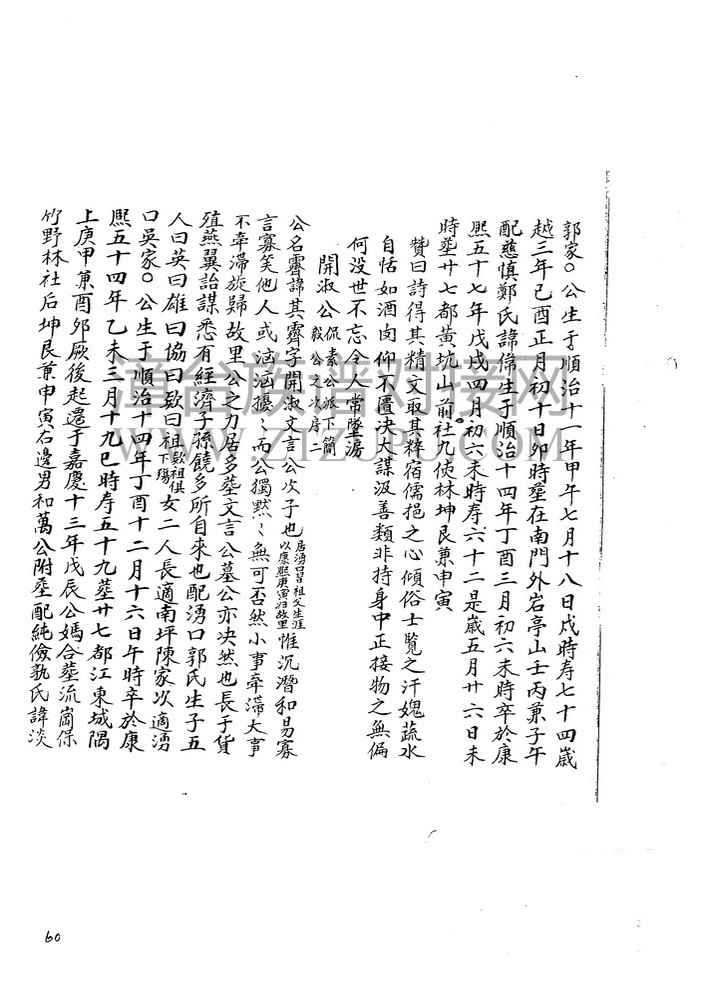 郭家○公生于順治十一年甲午七月十八日戌時寿七十四歲
越三年已酉正月初十日卯時塟在南門外岩亭山壬丙兼子午
配慈慎鄭氏諱偹生于順治十四年丁酉三月初六未時卒於康
熙五十七年戊戌四月初六未時寿六十二是歲五月廿六日未
時塟廿七都黃坑山前社九使林坤艮兼申寅
贊曰詩得其精文取其粹宿儒挹之心傾俗士覧之汗媿蔬水
自恬如酒肉仰不匱决大謀汲善類非持身中正接物之無偏
何没世不忘令人常墜淚
開淑公侃素公派下簡毅公之次房二
公名霽諱其霽字開淑文言公次子也居湧口呂祖父生涯以康熙庚寅归故里惟沉潛和易寡
言寡笑他人或滷滷擾〻而公獨默〻無可否然小事牵滯大事
不牵滯旋歸故里公之力居多塟文言公墓公亦决然也長于貨
殖燕翼詒謀悉有經濟子孫饒多所自來也配湧口郭氏生子五
人曰英曰雄曰協曰致曰祖歎祖俱下殤女二人長適南坪陳家次適湧
口吳家○公生于順治十四年丁酉十二月十六日午時卒於康
熙五十四年乙未三月十九巳時寿五十九塟廿七都江東城隅
上庚甲兼酉卯厥後起遷于嘉慶十三年戊辰公媽合塟流崗保
竹野林社后坤艮兼申寅右邊男和萬公附塟配純儉孰氏諱淡
60
道台族谱对接网
WWW.ZTZUPU.COM